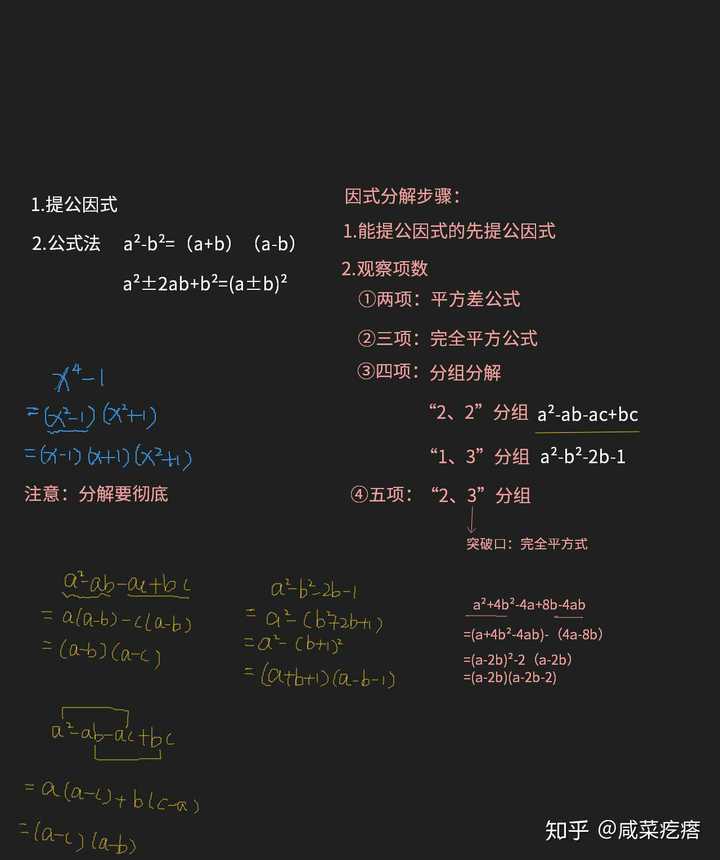 1.提公因式
2.公式法 a²-b²=（a+b）（a-b）
a²±2ab+b²=(a±b)²
x⁴-1
=(x²-1)(x²+1)
=(x-1)(x+1)(x²+1)
注意：分解要彻底
因式分解步骤：
1.能提公因式的先提公因式
2.观察项数
①两项：平方差公式
②三项：完全平方公式
③四项：分组分解
“2、2”分组 a²-ab-ac+bc
“1、3”分组 a²-b²-2b-1
④五项：“2、3”分组
突破口：完全平方式
a²-ab-ac+bc
=a(a-b)-c(a-b)
=(a-b)(a-c)
a²-b²-2b-1
=a²-(b²+2b+1)
=a²-(b+1)²
=(a+b+1)(a-b-1)
a²+4b²-4a+8b-4ab
=(a+4b²-4ab)-（4a-8b）
=(a-2b)²-2（a-2b）
=(a-2b)(a-2b-2)
a²-ab-ac+bc
=a(a-c)+b(c-a)
=(a-c)(a-b)
知乎 @咸菜疙瘩